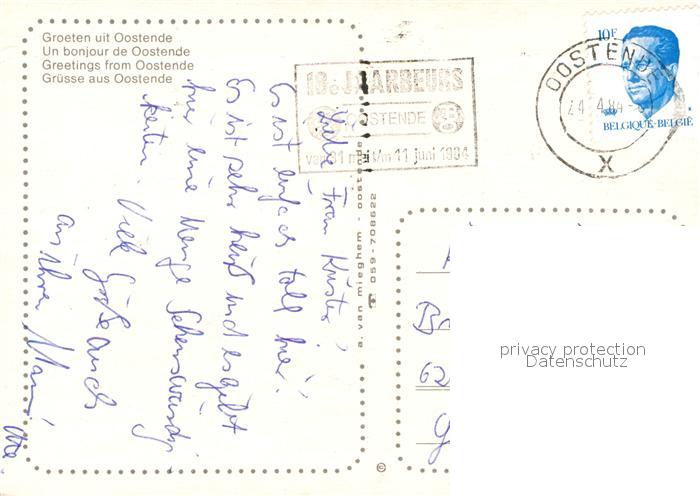 Groeten uit Oostende
Un bonjour de Oostende
Greetings from Oostende
Grüsse aus Oostende
18e JAARBEURS
OOSTENDE
van 31 mei t/m 11 juni 1984
OOSTENDE
24 4 84
X
10F
BELGIQUE-BELGIË
Liebe Frau Künster,
Es ist einfach toll hier!
Es ist sehr heiß und es gibt
hier eine Menge Sehenswürdig-
keiten. Viele Grüße auch
an Ihren Mann
a. van mieghem - oostende
☎ 059-708622
©
62
privacy protection
Datenschutz